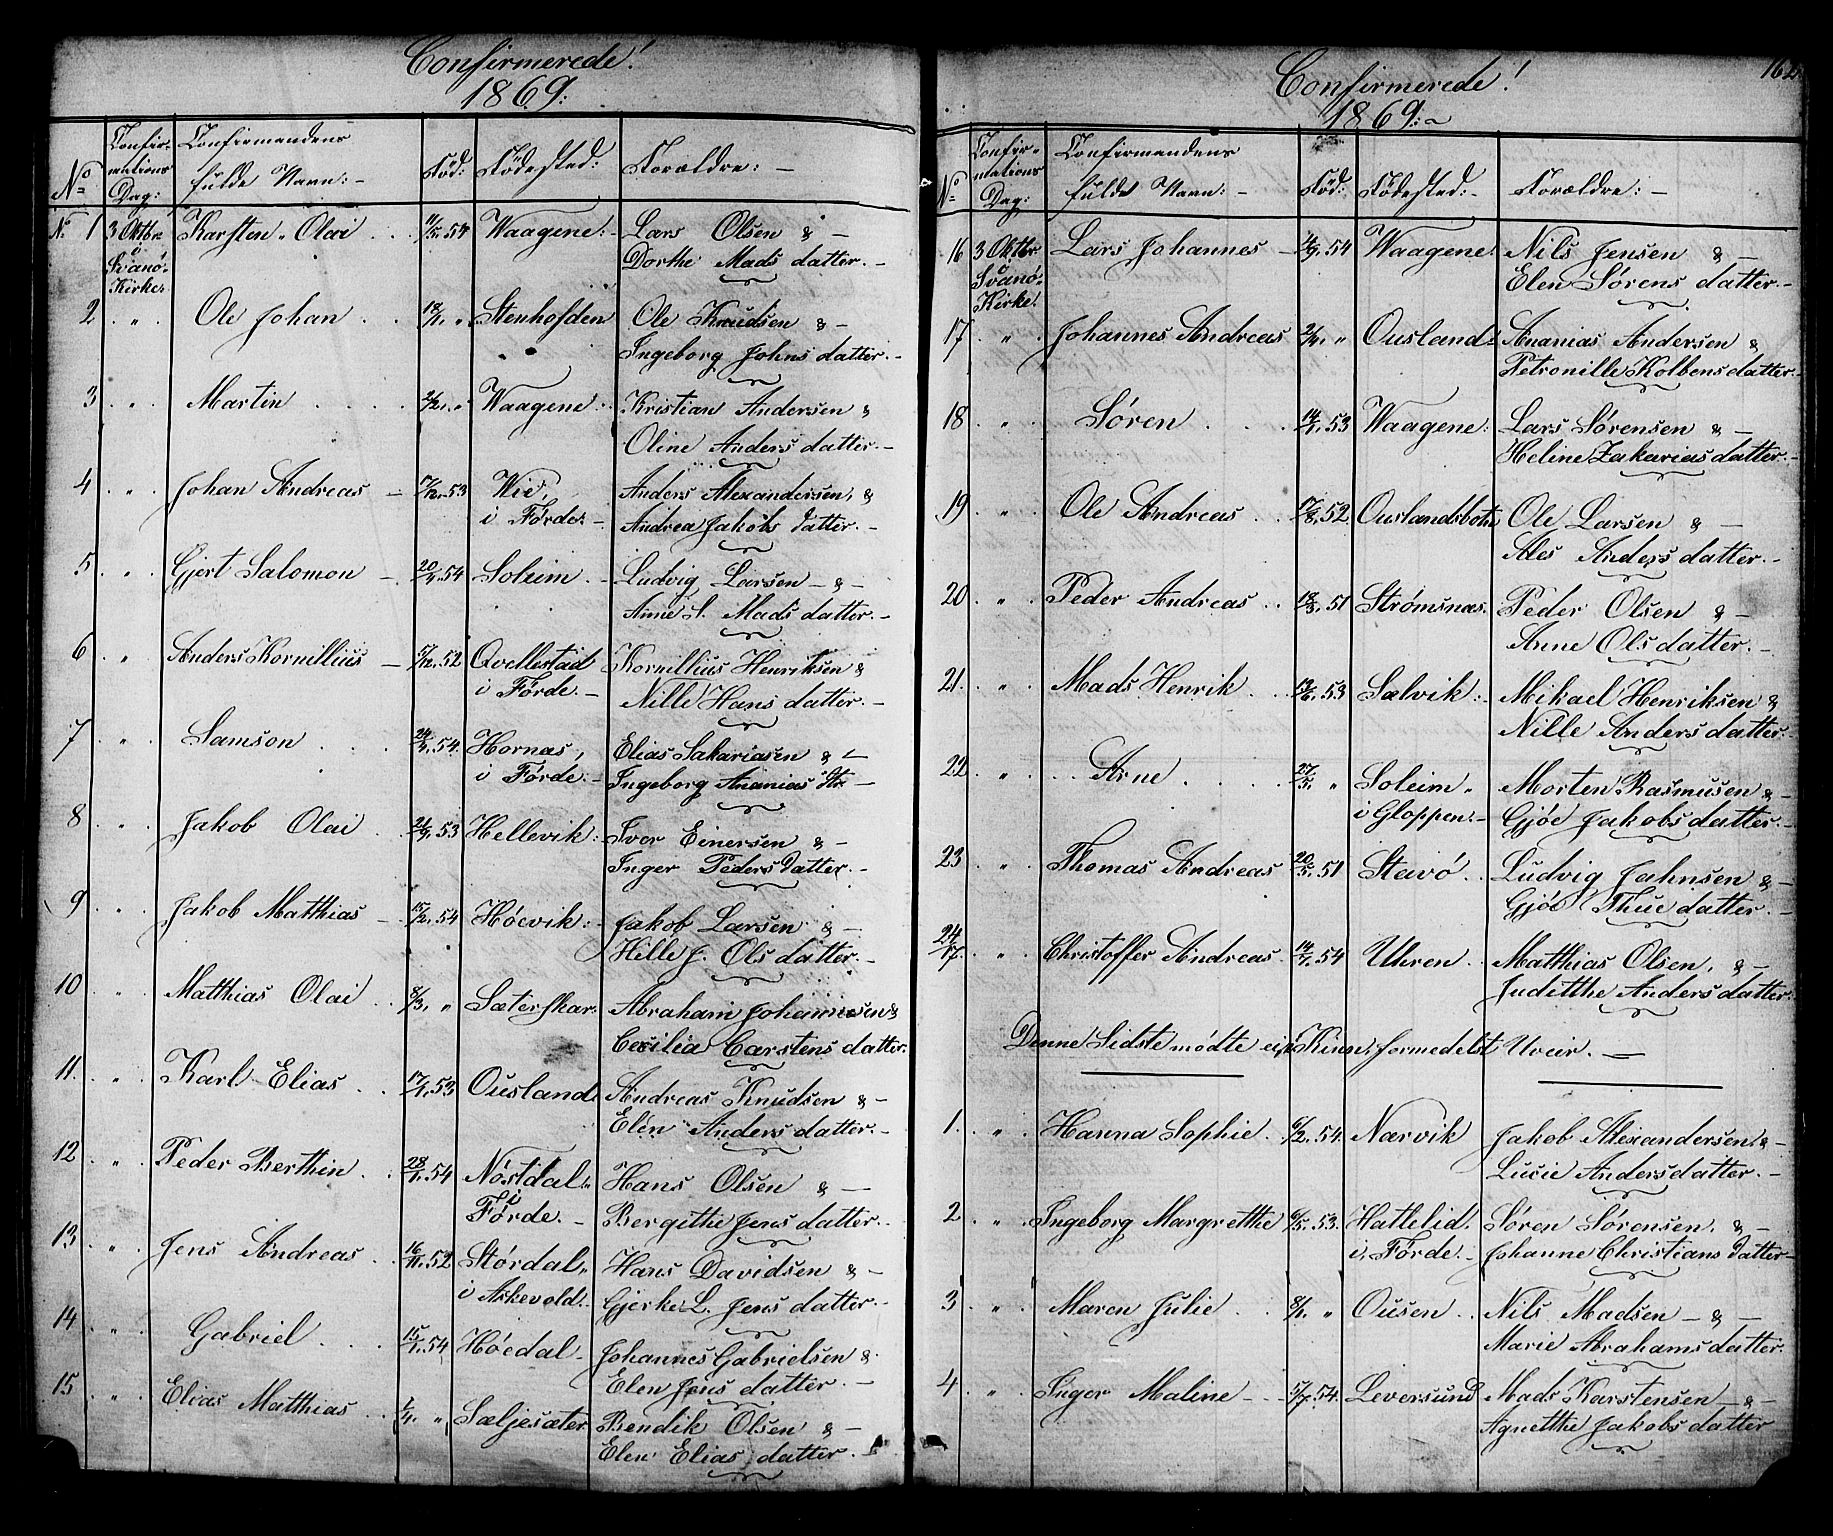 Confirmerede!
1869:
No
Confir-
mations
Dag:
Confirmandens
fulde Navn: -
Föd:
Födested:
Forældre: -
No 1 3 Oktbr. Karsten Olai . . 54 Waagene: Lars Olsen & -
i Svanö- Dorthe Mads datter. -
Kirke:
2 . " . Ole Johan . . 18/1. " Stenhofden Ole Knudsen & -
Ingeborg Johns datter. -
3 . " . Martin . . . . " Waagene: Kristian Andersen &
Oline Anders datter. -
4 . " . Johan Andreas - 53 Wie, Anders Alexandersen, &
i Förde: - Andrea Jakobs datter. -
5 . " . Gjert Salomon - . 54 Soleim. - Ludvig Larsen - & -
Anne S. Mads datter. -
6 . " Anders Kornillius - 5/12. 52 Qvellestad Kornillius Henriksen &
i Förde. - Nille Hans datter. -
7 . " . Samson . . . 54. Hornas, Elias Sakariasen & -
i Förde. - Ingeborg Ananias dtr -
8 . " . Jakob Olai . . 53 Hellevik: Iver Einersen & -
Inger Peders datter. -
9 . " . Jakob Matthias - . 15/2. 54 Höevik: - Jakob Larsen & -
Hille J. Ols datter. -
10 . " . Matthias Olai . . 8/3. " Sæterskar. Abraham Johannesen &
Cecilia Carstens datter.
11. . " . Karl Elias . . 53 Ousland: Andreas Knudsen & -
Elen Anders datter. -
12 . " . Peder Berthin . . 54 Nöstdal " Hans Olsen & -
i Förde. - Bergithe Jens datter. -
13 . " . Jens Andreas . . 16/11. 52 Stördal " Hans Davidsen & -
i Askevold. . Gjerke L. Jens datter. -
14 . " . Gabriel . . . 54 Höedal - Johannes Gabrielsen &
Elen Jens datter. -
15 . " . Elias Matthias . . " Sæljesæter Bendik Olsen & -
Elen Elias datter. -
162
Confirmerede!
1869:~
No
Confir-
mations
Dag:
Confirmandens
fulde Navn: -
Föd:
Födested: -
Forældre: -
16 3 Oktbr. Lars Johannes - 54 Waagene: Nils Jensen & -
i Svanö- Elen Sörens datter. -
Kirke!
17 . " . Johannes Andreas " Ousland: Ananias Andersen &
Petronille Kolbens datter. -
18 . " . Sören . . . 53 Waagene: Lars Sörensen & -
Heline Zakarias datter. -
19 . " . Ole Andreas . . 52. Ouslandsbotn Ole Larsen & -
Ales Anders datter. -
20 . " . Peder Andreas . . 51 Strömsnas. Peder Olsen & -
Anne Ols datter. -
21. . " . Mads Henrik . . 53 Sælvik: - Mikael Henriksen &
Nille Anders datter. -
22 . " . . . Arne . . . 27/5. " Soleim " Morten Rasmusen & -
i Gloppen: - Gjöe Jakobs datter. -
23 . " . Thomas Andreas 20/5. 51 Stavö . . Ludvig Jahnsen & -
Gjöe Thue datter. -
24 . " . Christoffer Andreas 54 Uhren . . Matthias Olsen, & -
Juditthe Anders datter.
Denne Sidste mödte ei i Kinn, formedelst Uveir. -
1. . " . Hanna Sophie. 6/2. 54. Narvik Jakob Alexandersen, & -
Lucie Anders datter. -
2 . " . Ingeborg Margrethe 6/5. 53. Hattelid. Sören Sörensen, & -
i Förde. - Johanne Christians datter -
3 . " . Maren Julie . . " Ousen . . Nils Madsen - & -
Marie Abrahams datter.
4 . " . Inger Maline - . 5/7. 54. Leversund Mads Karstensen - & -
Agnetthe Jakobs datter